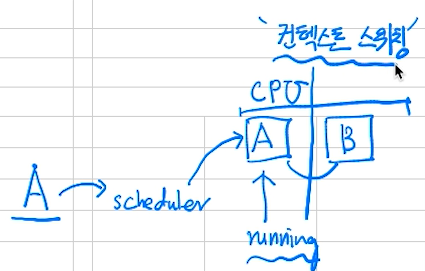 '컨텍스트 스위칭'
CPU
A B
A scheduler
running